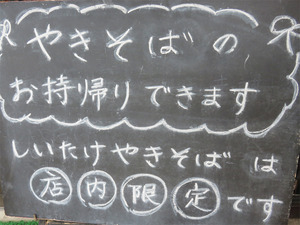 やきそばの
お持帰りできます
しいたけやきそばは
店内限定です